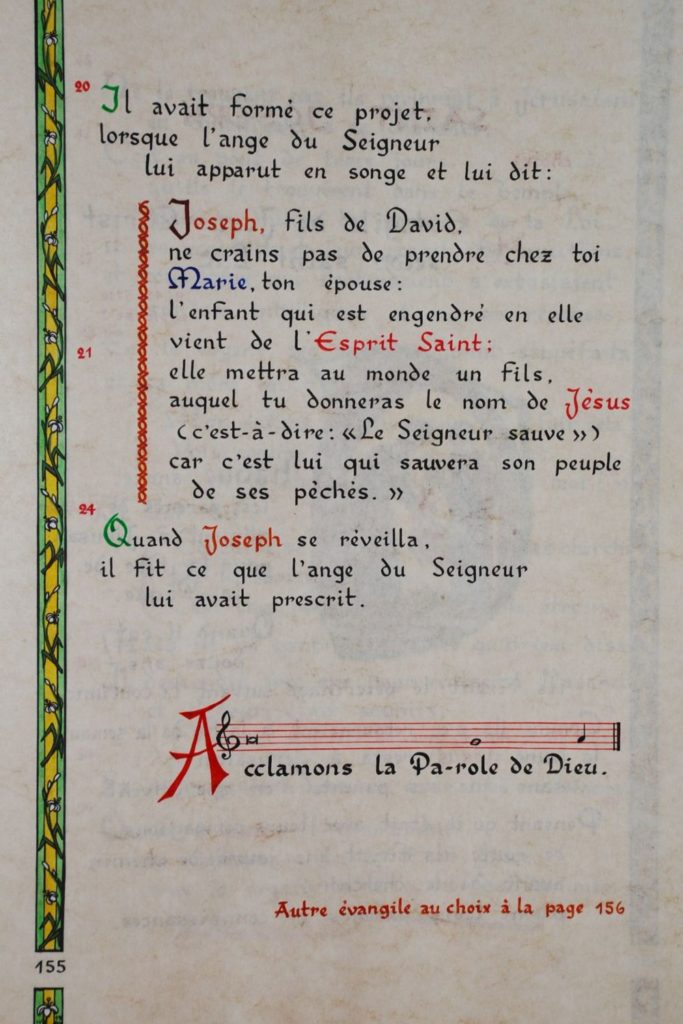 20
Il avait formé ce projet,
lorsque l'ange du Seigneur
lui apparut en songe et lui dit:
Joseph, fils de David,
ne crains pas de prendre chez toi
Marie, ton épouse:
l'enfant qui est engendré en elle
vient de l'Esprit Saint;
21
elle mettra au monde un fils,
auquel tu donneras le nom de Jésus
(c'est-à-dire: «Le Seigneur sauve»)
car c'est lui qui sauvera son peuple
de ses péchés. »
24
Quand Joseph se réveilla,
il fit ce que l'ange du Seigneur
lui avait prescrit.
Acclamons la Pa-role de Dieu.
Autre évangile au choix à la page 156
155